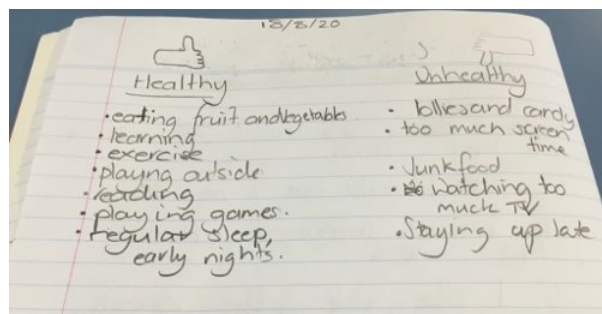 18/8/20
Healthy
• eating fruit and vegetables
• learning
• exercise
• playing outside
• reading
• playing games.
• regular sleep,
early nights.
Unhealthy
• lollies and candy
• too much screen
time
• Junkfood
• Watching too
much TV
• Staying up late